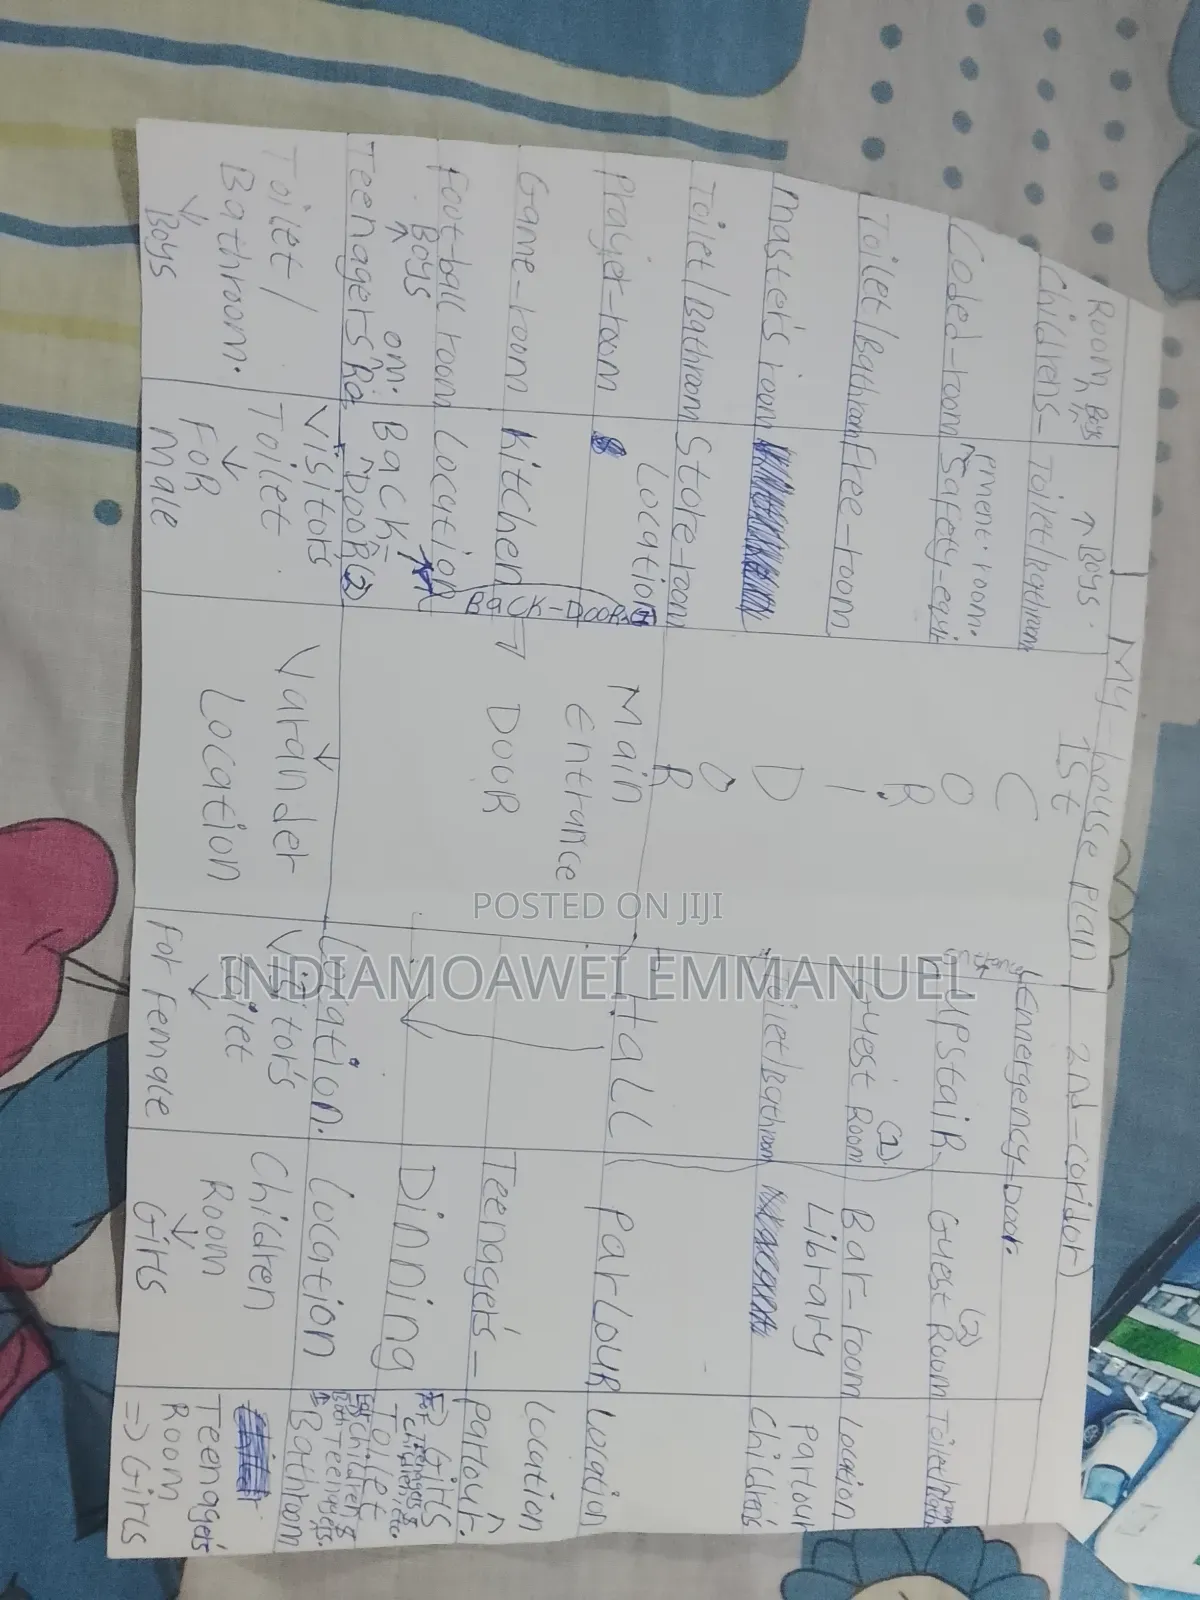 My-house plan
1st
2nd-coridor)
Room Boys
Childrens-
↑ Boys.
Toilet/Bathroom
Emergency-Door.
Coded-room
Safety-equi
pment-room.
C
O
R
I
D
O
R
UPstaiR
Guest Room
(2)
Toilet/Bathroom
Toilet/Bathroom
Free-room
Guest Room
(1)
Bar-room
Location
Master's room
Library
Parlour
Toilet/Bathroom
Children's
Toilet/Bathroom
Store-room
Prayer-room
Location
Main
Entrance
DOOR
Hall
ParLOUR
Location
Game-room
Kitchen
BaCK-DOOR
Teenagers-
Parlour.
Location
Foot-ball room
Boys
Location
Dinning
=> Girls
Teenagers Ro
om.
BaCK-
DOOR(2)
Location.
Location
Toilet
Bathroom
Toilet/
Bathroom.
Boys
Visitors
Toilet
FoR
Male
Varander
Location
Visitors
Toilet
For Female
Children
Room
Girls
Teenagers
Room
=> Girls
POSTED ON JIJI
INDIAMOAWEI EMMANUEL